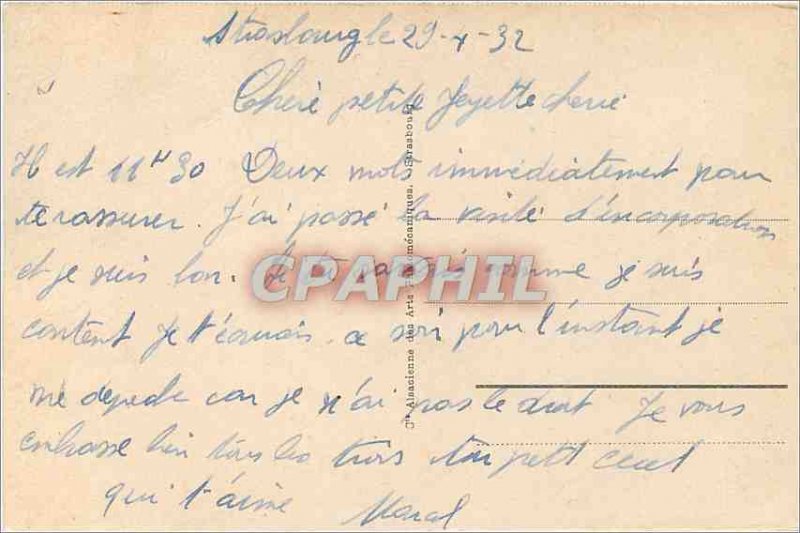 Strasbourg le 29-X-32
Cheré petite Jeyette cherie
Il est 11H30 Deux mots immédiatement pour
te rassurer. J'ai passé la visite d'incorporation
et je suis bon. Si tu savais comme je suis
content Je t'écrirais ce soir pour l'instant je
me depeche car je n'ai pas le droit Je vous
embrasse bien tous les trois ton petit
qui t'aime Marcel
Cie Alsacienne des Arts Photomécaniques, Strasbourg
CPAPHIL